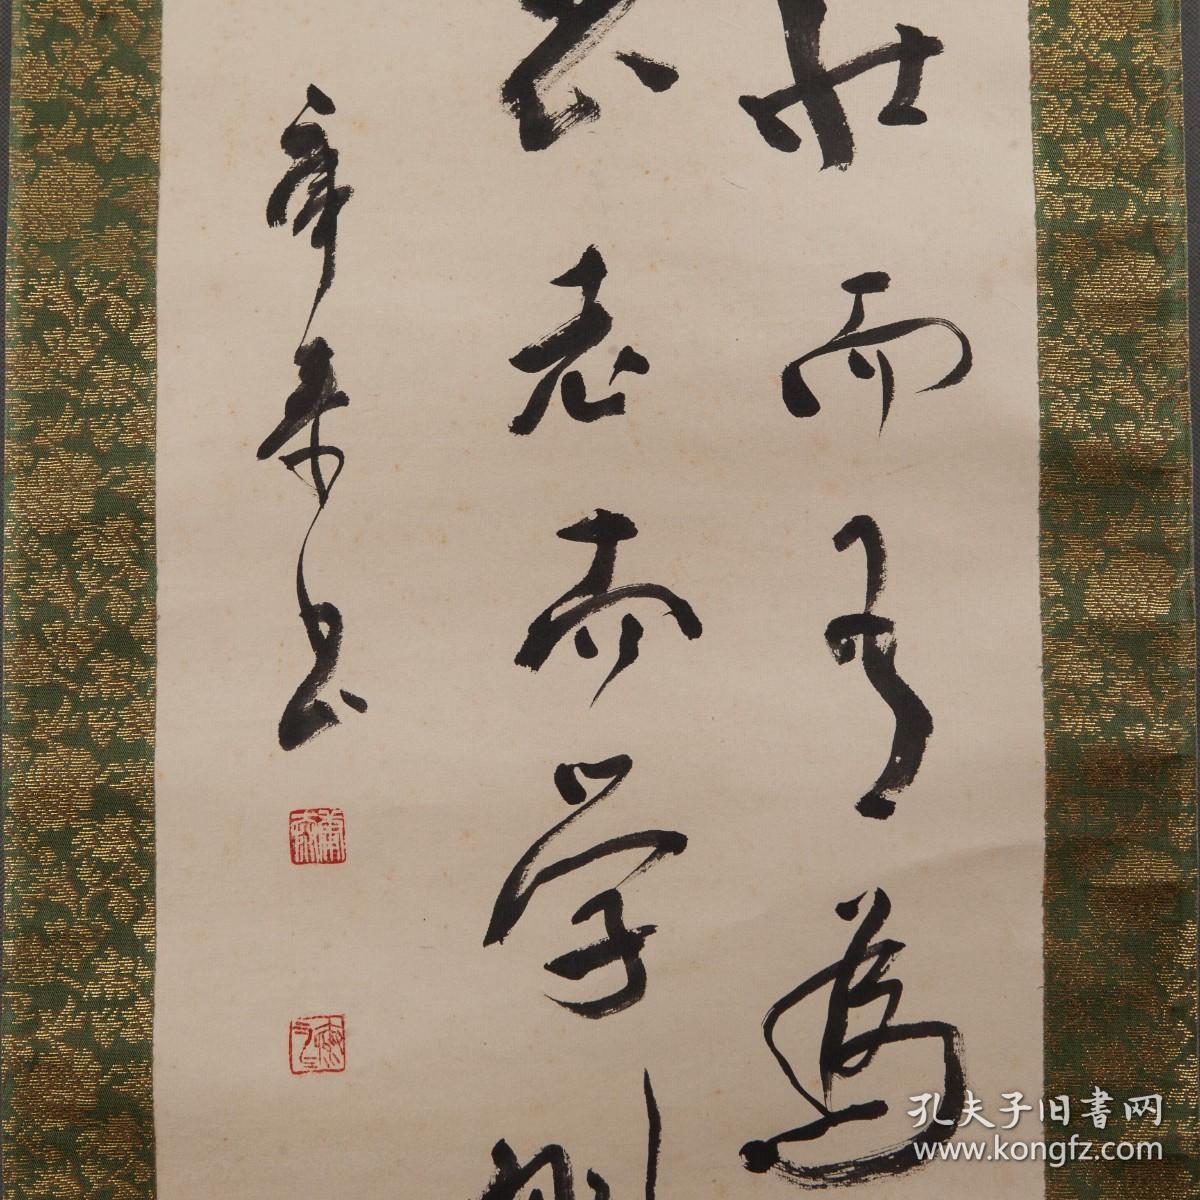 壮而有為
衰老而学則
書
孔夫子旧書网
www.kongfz.com